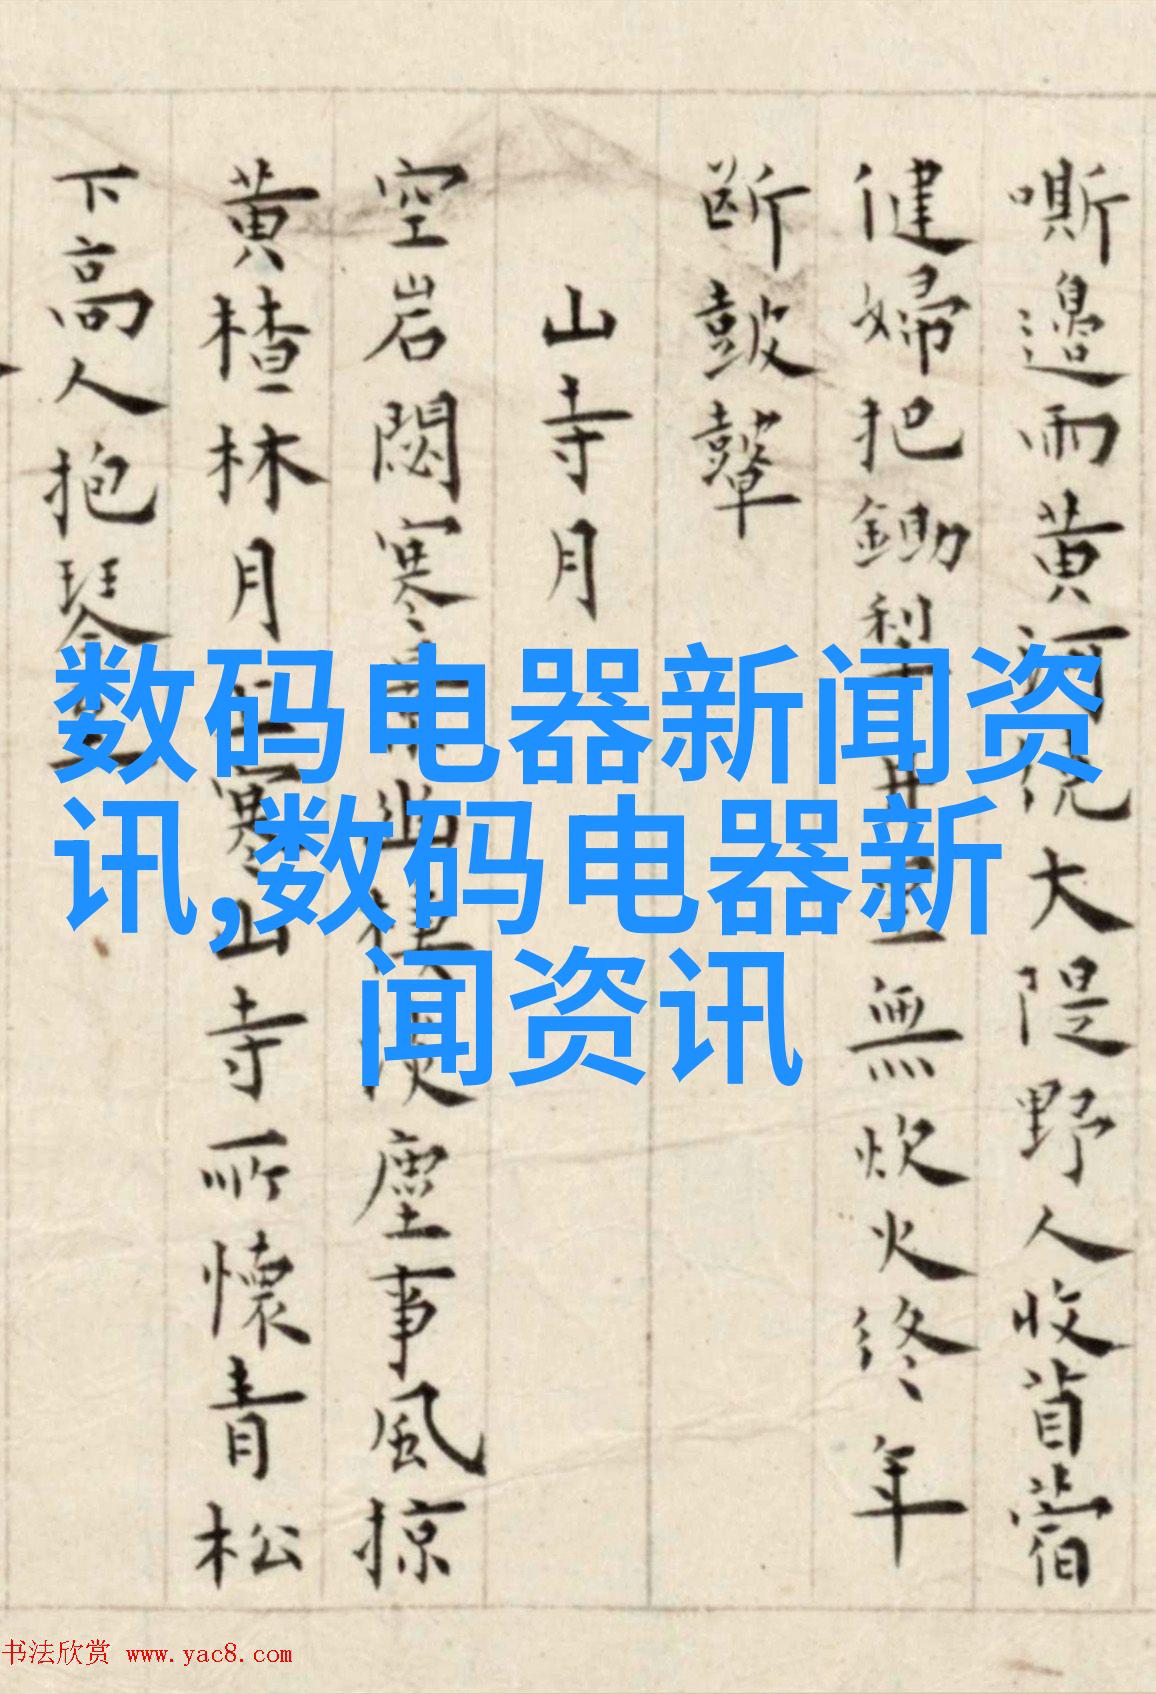 嘶邊雨黄河繞大隄野人收苜蓿
健婦把鋤犁井無炊火終年
斷鼓鼙
山寺月
空岩閟寒塵事風掠
黄楂林月寒山寺所懷青松
下高人抱琴
数码电器新闻资
讯,数码电器新
闻资讯
书法欣赏 www.yac8.com